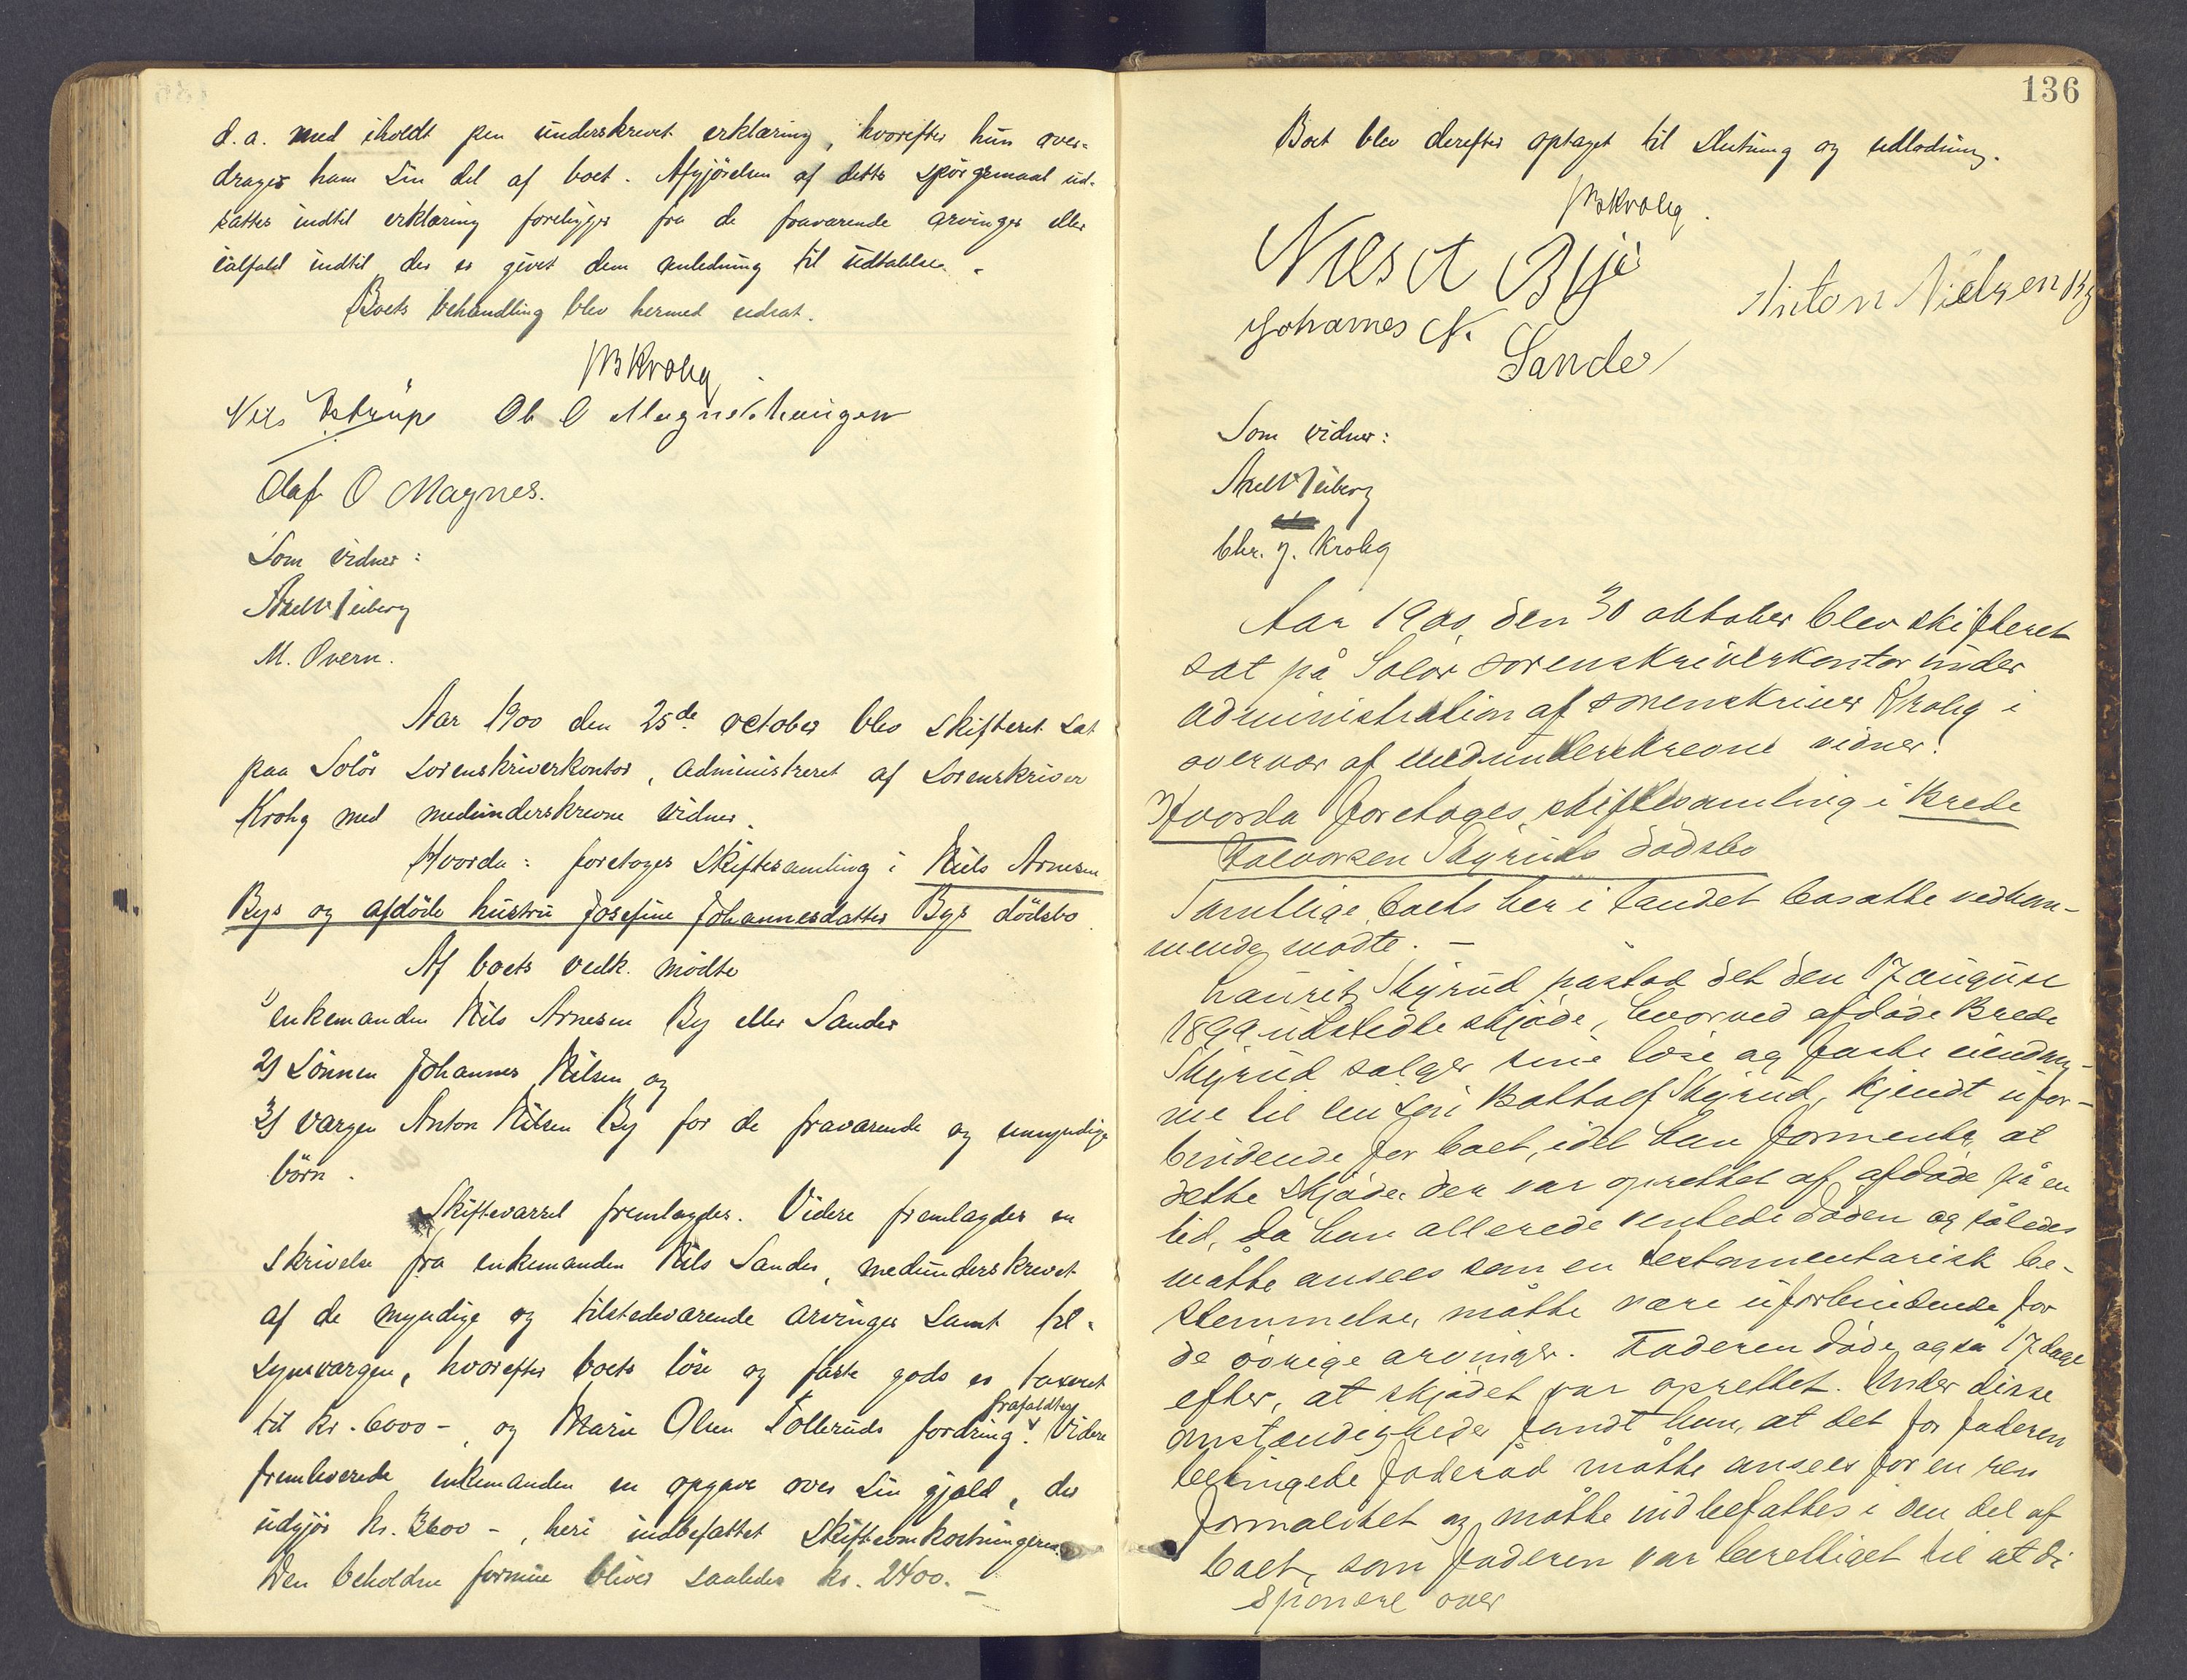 d. a. med iholdt pen underskrevet erklæring, hvorefter hun over-
drages ham sin del af boet. Afgjörelsen af dette spörgsmaal ud-
sattes indtil erklæring foreligger fra de fraværende arvinger eller
ialfald indtil der er givet dem anledning til udtalelse.
Boets behandling blev hermed udsat.
Krohg
Nils Ostrup Ol O Magneshaugen
Olaf O Magnes.
Som vidner:
Axel Heiberg
M. Overn.
Aar 1900 den 25de october blev skifteret sat
paa Solör sorenskriverkontor, administreret af sorenskriver
Krohg med medunderskrevne vidner.
Hvorda: foretages skiftesamling i Nils Arnesen
Bys og afdöde hustru Josefine Johannesdatter Bys dödsbo.
Af boets vedk. mödte
1) enkemanden Nils Arnesen By eller Sander
2) Sönnen Johannes Nilsen og
3)værgen Anton Nilsen By for de fraværende og umyndige
börn.
Skiftevarsel fremlagdes. Videre fremlagdes en
skrivelse fra enkemanden Nils Sander, medunderskrevet
af de myndige og tilstedeværende arvinger samt til-
synsværgen, hvorefter boets löse og faste gods er taxeret
til kr. 6000 -, og Marie Olsen Tolleruds fordring frafaldtes. Videre
fremleverede enkemanden en opgave over sin gjæld, der
udgjör kr. 3600 -, heri indbefattet skifteomkostningerne.
Den beholdne formue bliver saaledes kr. 2400. -
136
Boet blev derefter optaget til slutning og udlodning.
Krohg.
Nils A By
Anton Nielsen By
Johannes N. Sander
Som vidner:
Axel Heiberg
Chr. J. Krohg
Aar 1900 den 30 oktober blev skifteret
sat på Solör sorenskriverkontor under
administration af sorenskriver Krohg i
overvær af medunderskrevne vidner.
Hvorda foretages skiftesamling i Brede
Halvorsen Skyruds dödsbo
Samtlige boets her i landet bosatte vedkom-
mende mödte. -
Laurits Skyrud påstod det den 17 august
1899 udstedte skjöde, hvorved afdöde Brede
Skyrud sælger sine löse og faste eiendom-
me til sin sön Botholf Skyrud, kjendt ufor-
bindende for boet, idet han formente, at
dette skjöde der var oprettet af afdöde på en
tid, da han allerede ventede döden og således
måtte ansees som en testamentarisk be-
stemmelse, måtte være uforbindende for
de övrige arvinger. Faderen döde også 17 dage
efter, at skjödet var oprettet. Under disse
omstændigheder fandt han, at det for faderen
betingede föderåd måtte ansees for en ren
formalitet og måtte indbefattes i den del af
boet, som faderen var berettiget til at di
sponere over